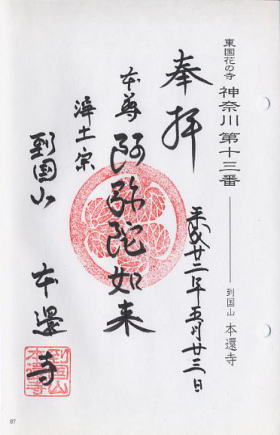 東国花の寺 神奈川 第十三番 到国山 本還寺
奉拝
平成廿二年五月廿三日
本尊 阿弥陀如来
浄土宗
到国山 本還寺
到国山
本還寺
87